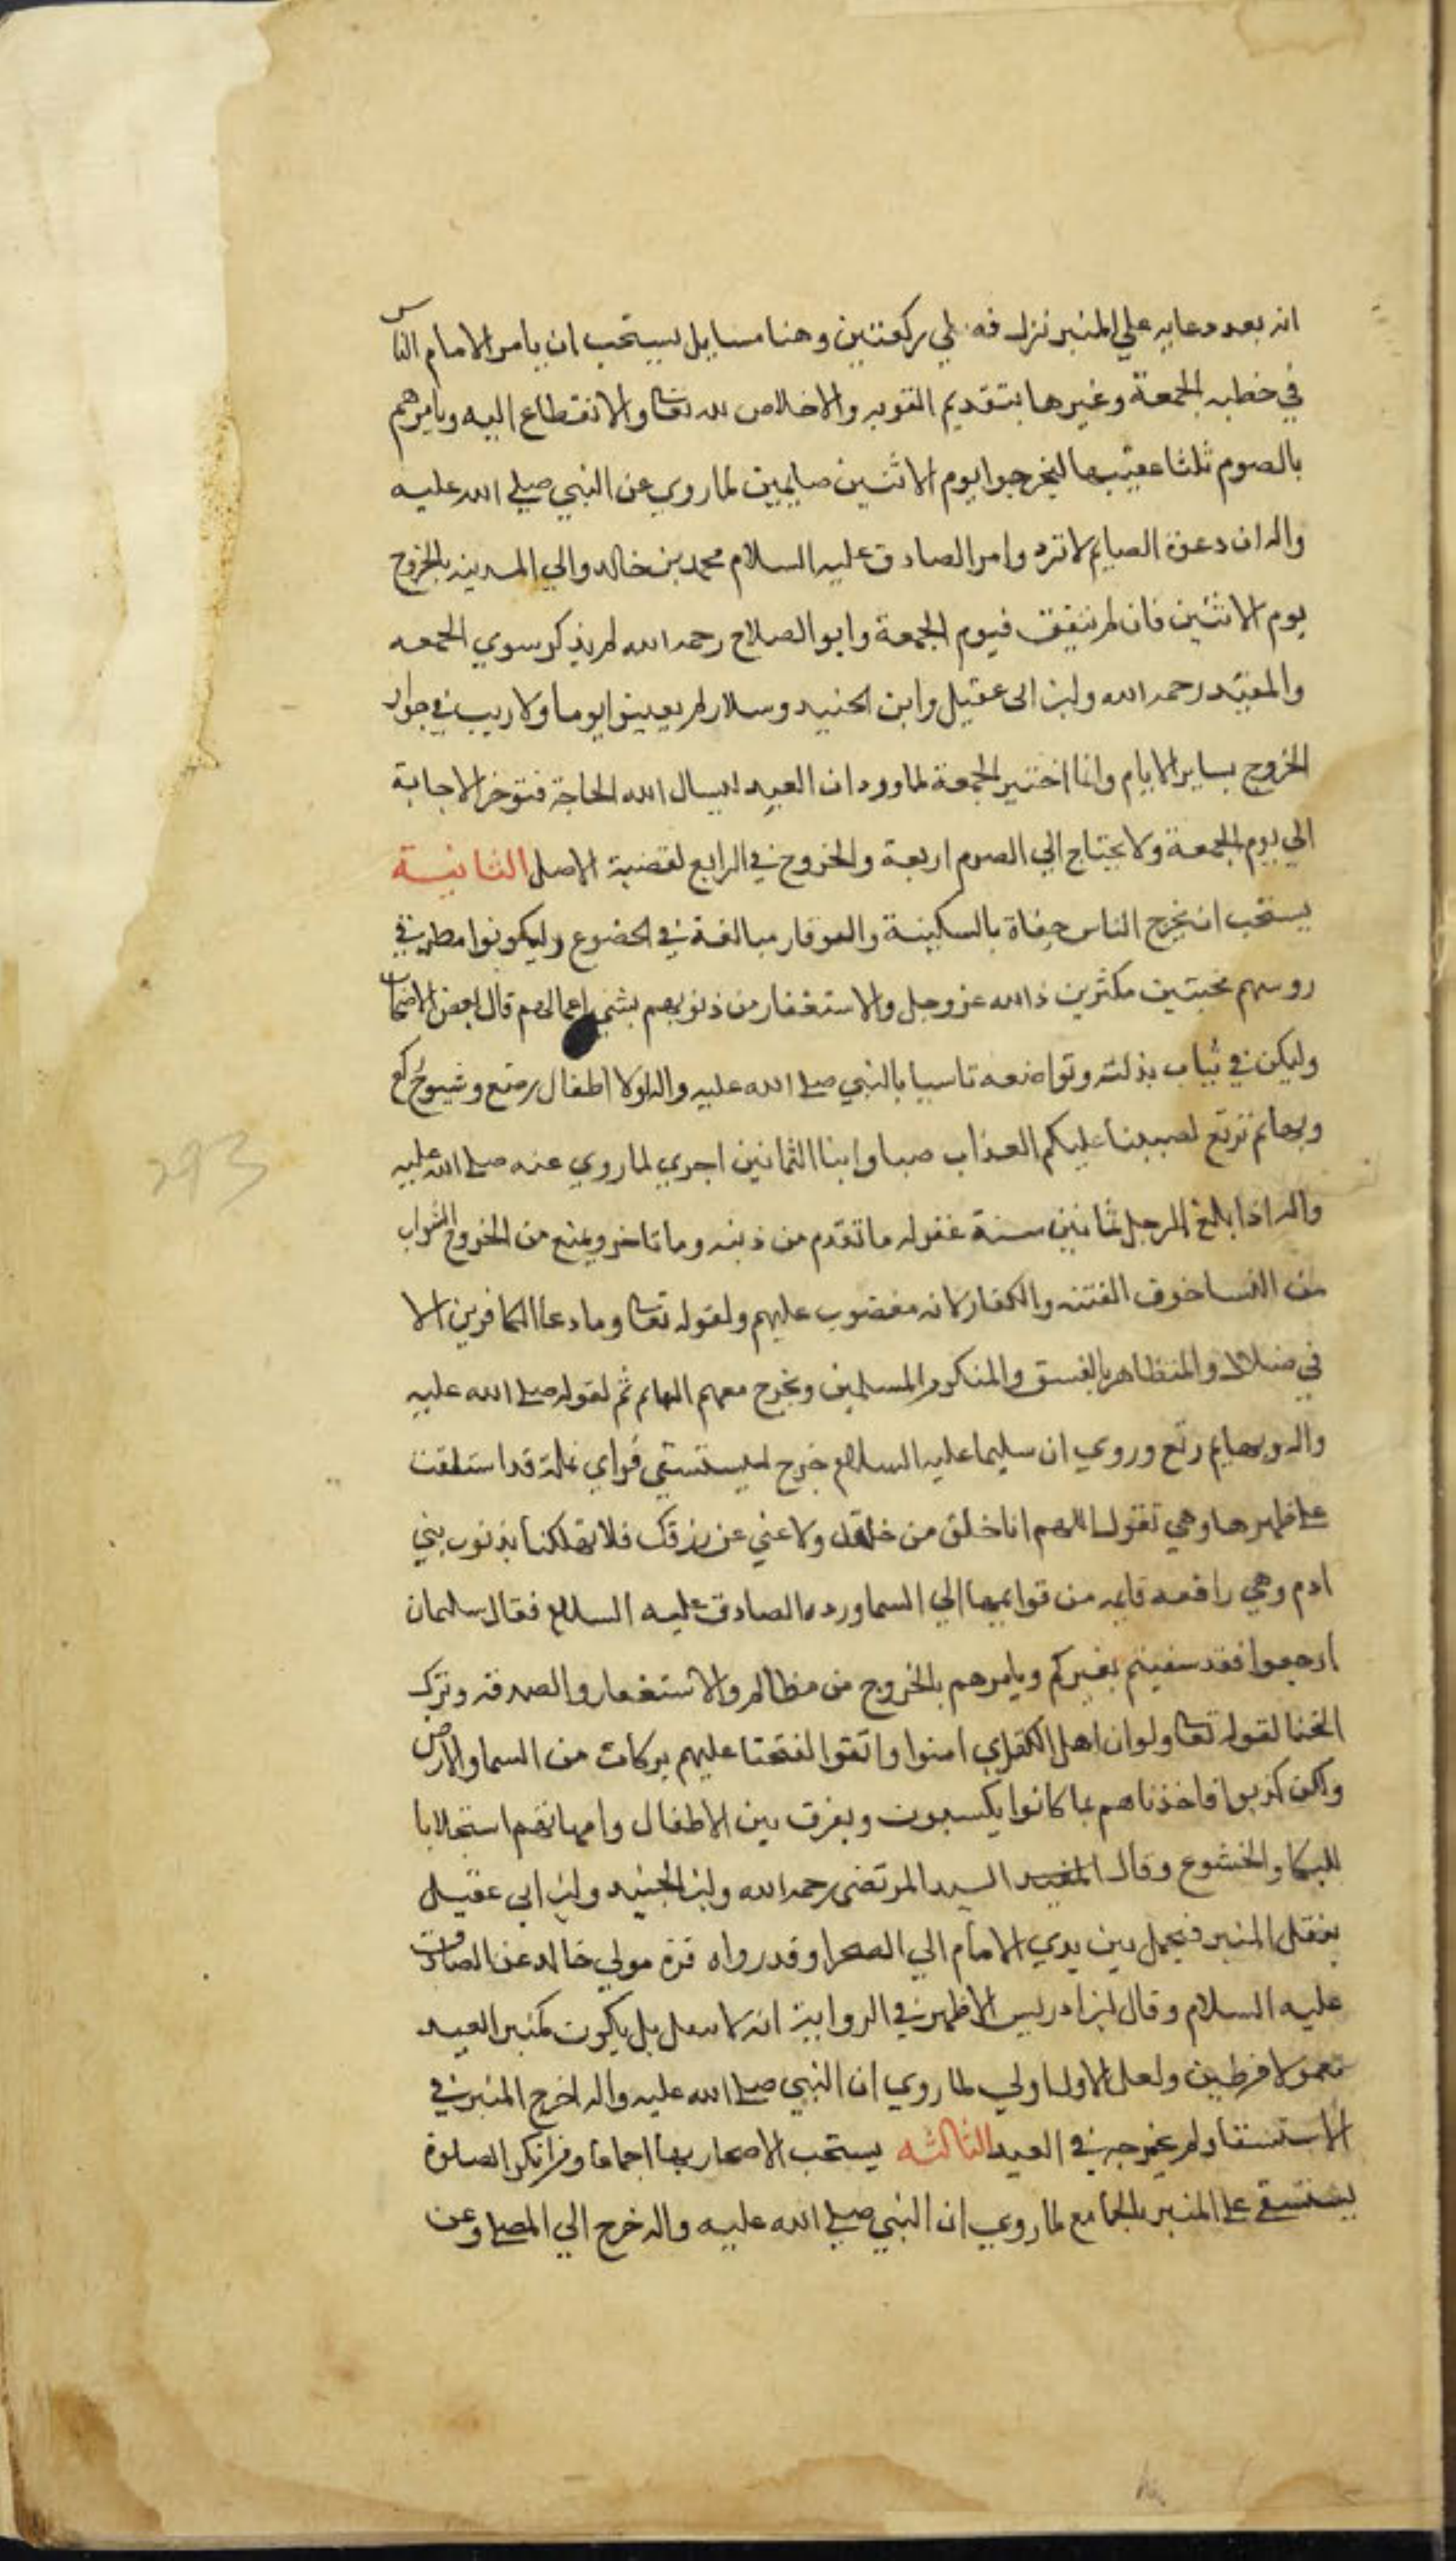 انه بعد دعايه علي المنبر نزل فصلي ركعتين وهنا مسايل يستحب ان يامر الامام الناس
في خطبه الجمعة وغيرها بتقديم التوبه والاخلاص لله تعا والانقطاع اليه ويامرهم
بالصوم ثلثا عقيبها ليخرجوا يوم الاثنين صايمين لما روي عن النبي صلى الله عليه
واله ان دعوة الصايم لا ترد وامر الصادق عليه السلام محمد بن خالد والي المدينه بالخروج
يوم الاثنين فان لم يتفق فيوم الجمعة وابو الصلاح رحمه الله لم يذكر سوي الجمعه
والمفيد رحمه الله وابن ابى عقيل وابن الجنيد وسلار لم يعينوا يوما ولا ريب في جواز
الخروج بساير الايام وانما اختير الجمعة لما ورد ان العبد ليسال الله الحاجة فتوخر الاجابة
الي يوم الجمعة ولا يحتاج الي الصوم اربعة والخروج في الرابع لقضية الاصل الثانية
يستحب ان يخرج الناس حفاة بالسكينة والوقار مبالغة في الخضوع وليكونوا مطرقي
روسهم مخبتين مكثرين ذ الله عز وجل والاستغفار من ذنوبهم بشي اعمالهم قال بعض الاصحاب
وليكن في ثياب بذلته وتواضعه تاسيا بالنبي صلى الله عليه واله لولا اطفال رضع وشيوخ ركع
وبهايم ترتع لصببنا عليكم العذاب صبا وابنا الثمانين احري لما روي عنه صلى الله عليه
واله اذا بلغ الرجل ثمانين سنة غفر له ما تقدم من ذنبه وما تاخر ويمنع من الخروج الشواب
من النسا خوف الفتنه والكفار لانه مغضوب عليهم ولقوله تعا وما دعا الكافرين الا
في ضلال والمتظاهر بالفسق والمنكر والمسلمين ويخرج معهم البهايم ثم لقوله صلى الله عليه
واله وبهايم رتع وروي ان سليما عليه السلام خرج ليستسقي فراي نملة قد استلقت
على ظهرها وهي تقول اللهم انا خلق من خلقك ولا غني عن رزقك فلا تهلكنا بذنوب بني
ادم وهي رافعه قايمه من قوايمها الي السما ورده الصادق عليه السلام فقال سليمان
ارجعوا فقد سقيتم بغيركم ويامرهم بالخروج من مظالم والاستغفار والصدقه وترك
الخنا لقوله تعا ولو ان اهل القري امنوا واتقوا لفتحنا عليهم بركات من السما والارض
ولكن كذبوا فاخذناهم بما كانوا يكسبون ويفرق بين الاطفال وامهاتهم استجلابا
للبكا والخشوع وقال المفيد السيد المرتضى رحمه الله وابن الجنيد وابن ابي عقيل
ينقل المنبر فيحمل بين يدي الامام الي الصحرا وقد رواه قرة مولي خالد عن الصادق
عليه السلام وقال ابن ادريس الاظهر في الرواية انه لا ينقل بل يكون كمنبر العيد
معمولا من طين ولعل الاول اولي لما روي ان النبي صلى الله عليه واله اخرج المنبر في
الاستسقا ولم يخرجه في العيد الثالثه يستحب الاصحار بها اجماعا ومن انكر الصلوة
يستسقي على المنبر بالجامع لما روي ان النبي صلى الله عليه واله خرج الي المصلى وعن
293